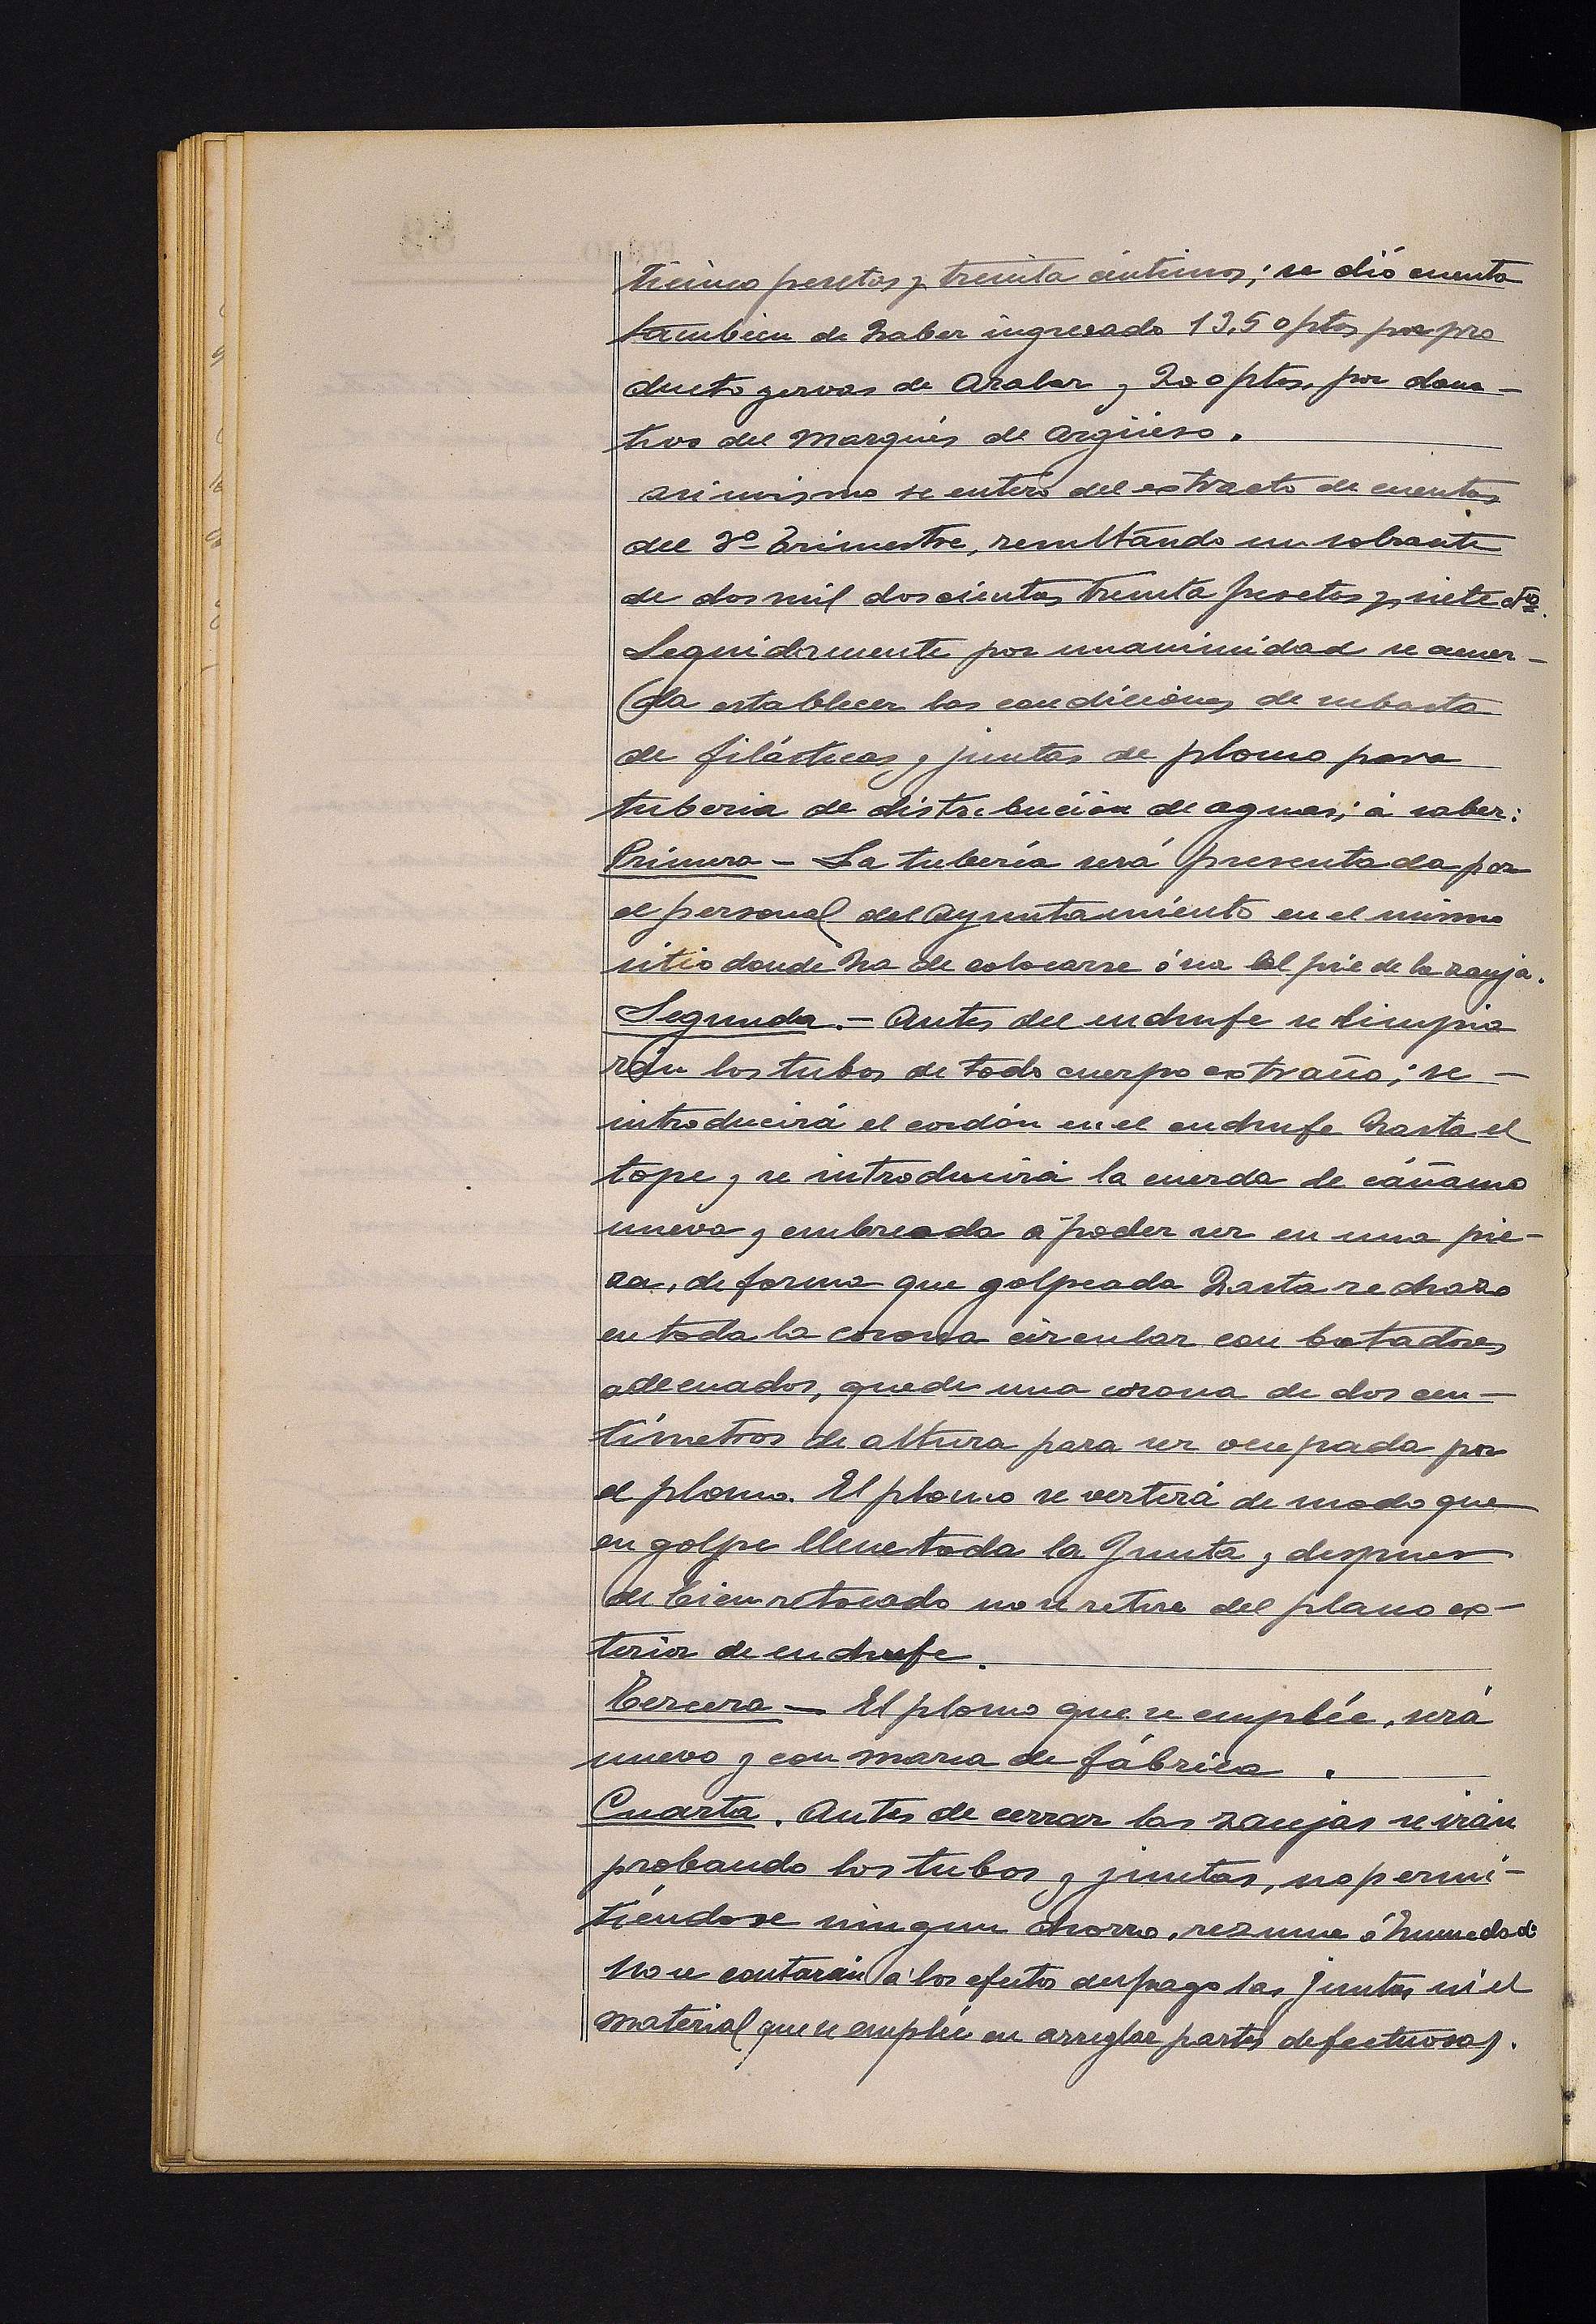 ticinco pesetas y treinta céntimos; se dió cuenta
tambien de haber ingresado 13,50 ptas por pro
ducto yervas de Aralar y 200 ptas. por dona-
tivo del Marqués de Argüeso.
asimismo se enteró del extracto de cuentas
del 3º Trimestre, resultando un sobrante
de dos mil doscientas treinta pesetas y siete cts.
Seguidamente por unanimidad se acuer-
da establecer las condiciones de subasta
de filásticas y juntas de plomo para
tuberia de distribución de aguas; á saber:
Primera - La tubería será presentada por
el personal del Ayuntamiento en el mismo
sitio donde ha de colocarse ó sea al pie de la zanja.
Segunda.- Antes del enchufe se limpia
rán los tubos de todo cuerpo extraño; se -
introducirá el cordón en el enchufe hasta el
tope y se introducirá la cuerda de cáñamo
nueva y embreada a poder ser en una pie-
za, de forma que golpeada hasta rechazo
en toda la corona circular con botadores
adecuados, quede una corona de dos cen-
tímetros de altura para ser ocupada por
el plomo. El plomo se verterá de modo que
en golpe llene toda la Junta y despues
de bien retocado no se retire del plano ex-
terior de enchufe.
Tercera - El plomo que se emplée, será
nuevo y con marca de fábrica.
Cuarta. Antes de cerrar las zanjas se irán
probando los tubos y juntas, no permi-
tiéndose ningun chorro, rezume ó humedad.
No se contarán a los efectos del pago las juntas ni el
material que se emplée en arreglar partes defectuosas.